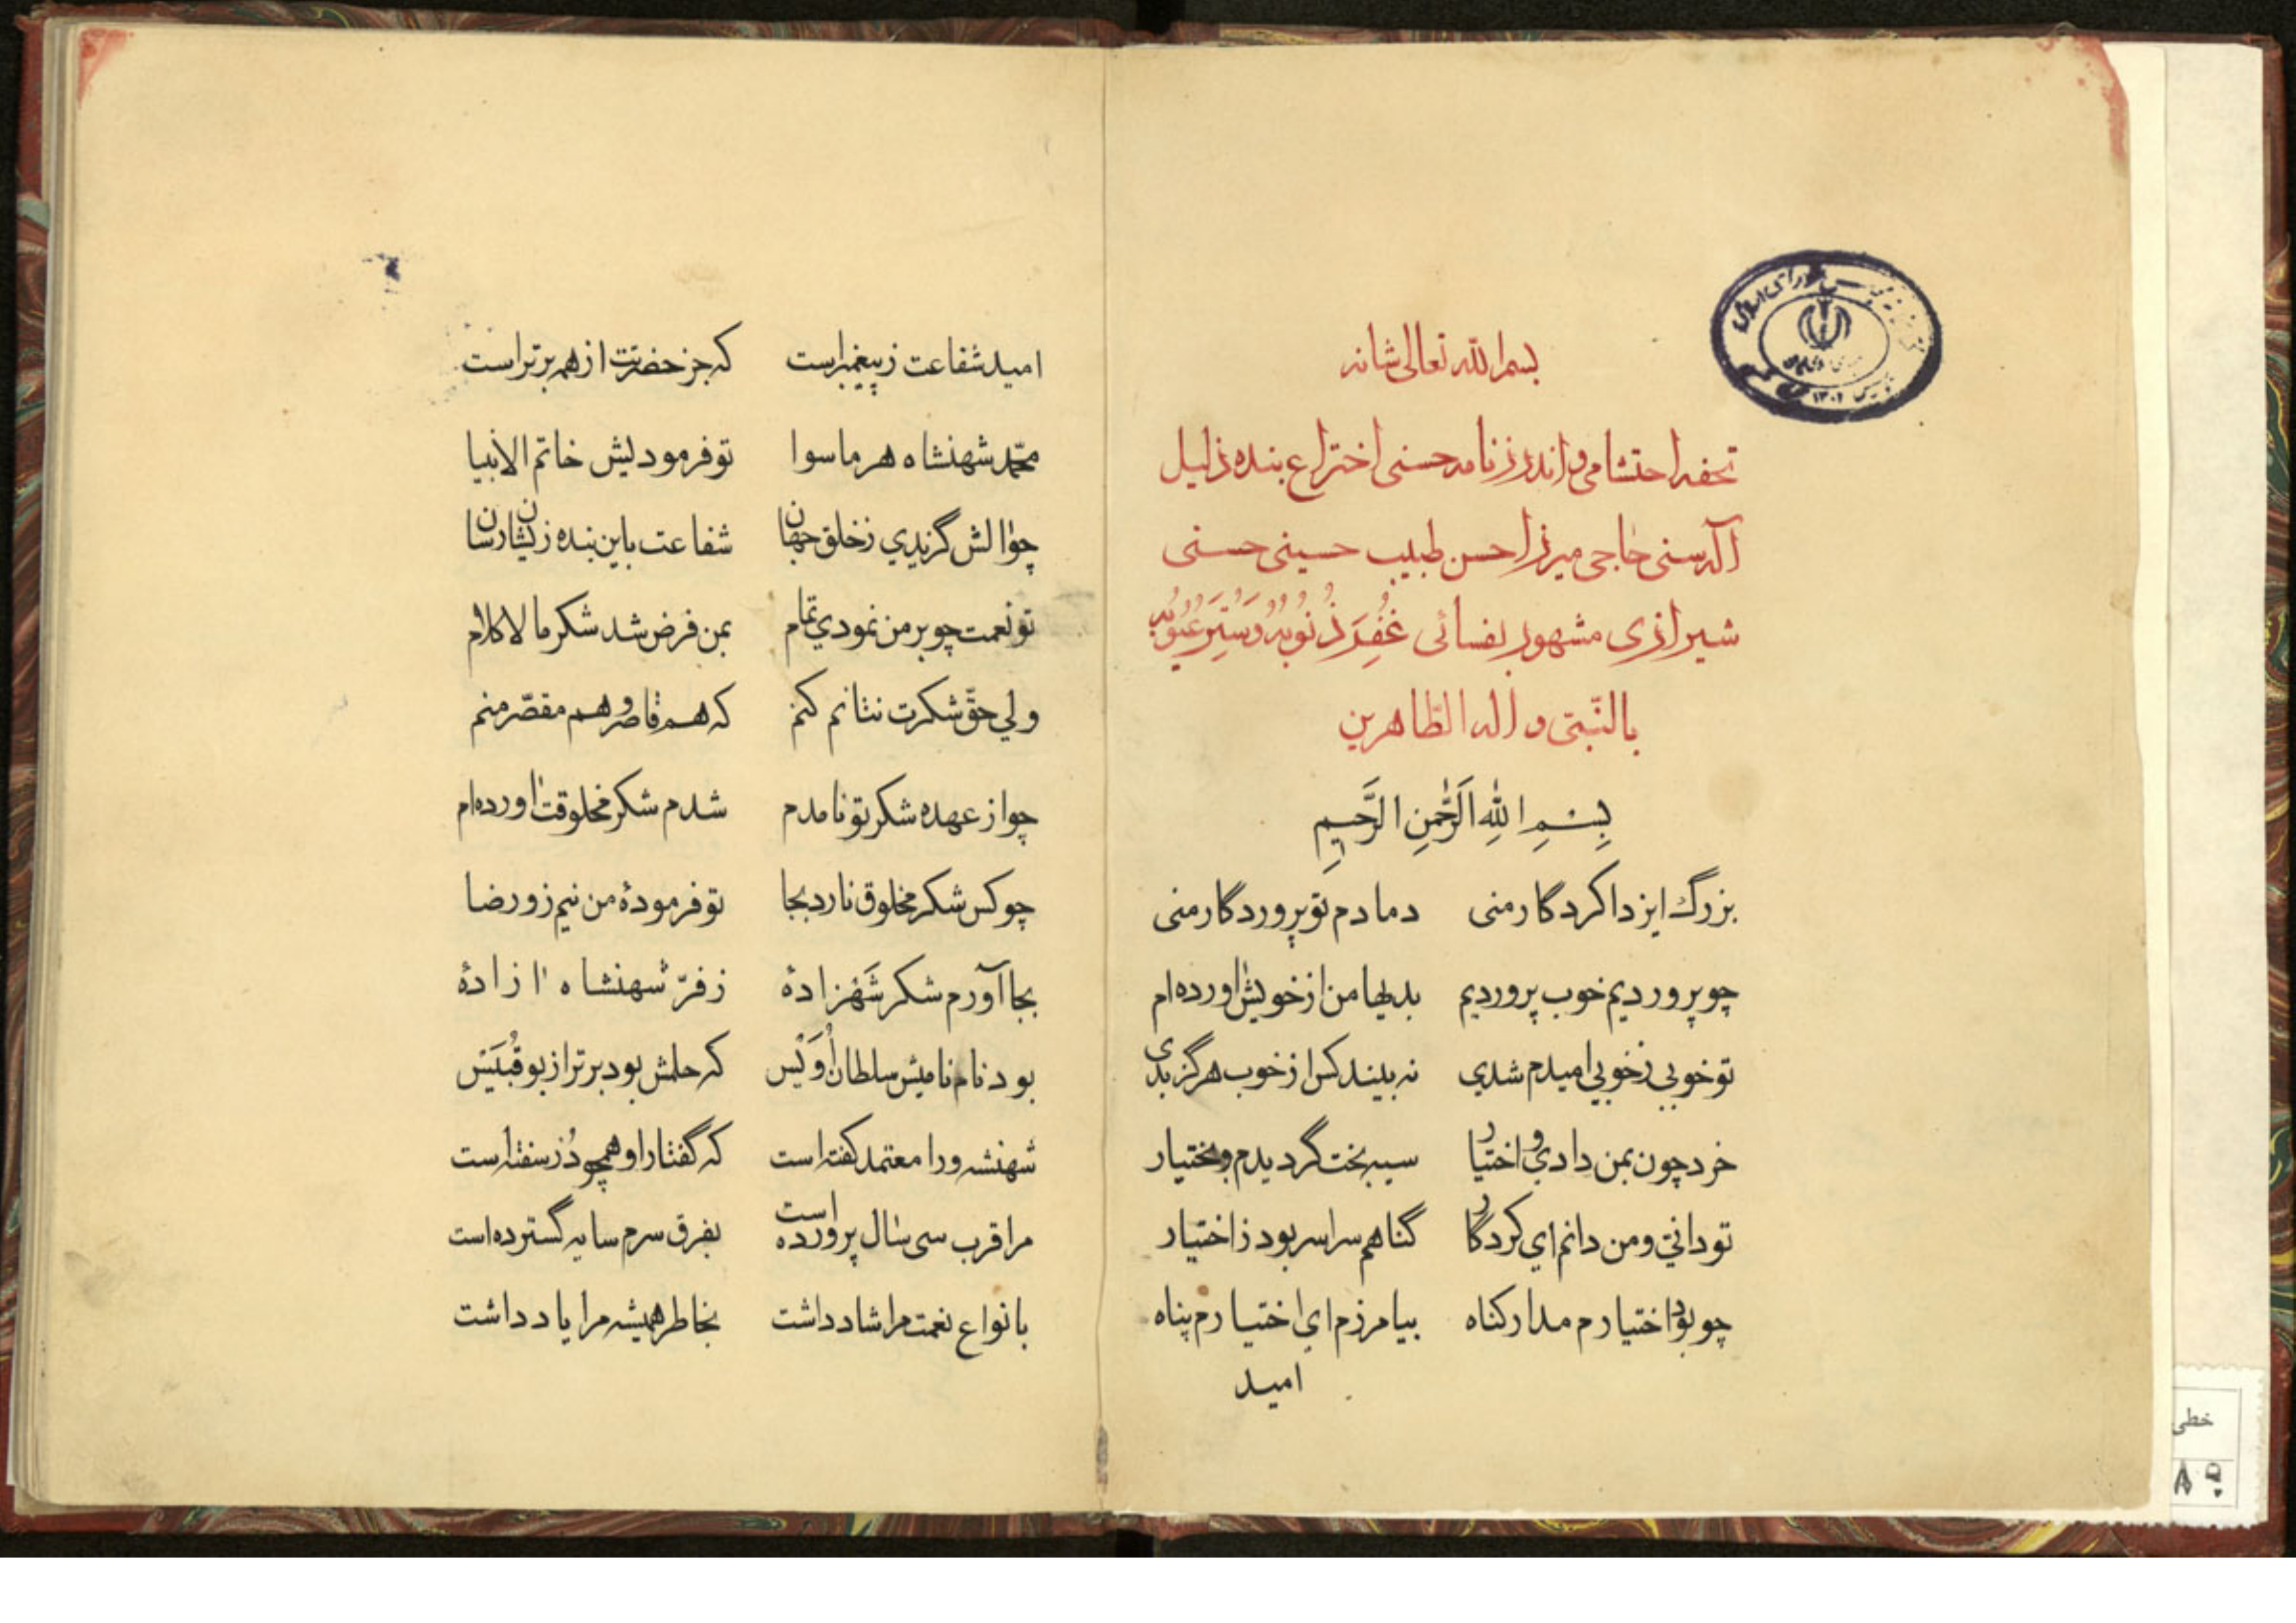 بسم الله تعالی شانه
تحفه احتشامی و اندرز نامه حسنی اختراع بنده ذلیل
اله سنی حاجی میرزا حسن طبیب حسینی حسنی
شیرازی مشهور بفسائی غُفِرَ ذُنُوبُهُ وَ سُتِرَ عُیُوبُهُ
بالنّبیّ و اله الطّاهرین
بِسْمِ اللهِ الرَّحْمٰنِ الرَّحیمِ
بزرگ ایزدا کردگار منی دمادم تو پروردگار منی
چو پروردیم خوب پروردیم بدیها من از خویش اورده‌ام
تو خوبی زخوبی امیدم شدي نه بیند کس از خوب هرگز بدی
خرد چون بمن دادي و اختیار سیه بخت گردیدم و بختیار
تو دانی و من دانم اي کردگار گناهم سراسر بود ز اختیار
چو بود اختیارم مدار کناه بیامرزم اي اختیارم پناه
امید
امید شفاعت ز پیغمبر است که جز حضرتت از همه برتر است
محمّد شهنشاه هر ماسوا تو فرمودیش خاتم الانبیا
چو الش گزیدي ز خلق جهان شفاعت باین بنده زیشان رسان
تو نعمت چو بر من نمودي تمام بمن فرض شد شکر ما لا کلام
ولي حقّ شکرت نتانم کنم که هم قاصر و هم مقصّر منم
چو از عهده شکر تو نامدم شدم شکر مخلوقت اورده‌ام
چو کس شکر مخلوق نارد بجا تو فرمودهٔ من نیم زو رضا
بجا آورم شکر شَهزادهٔ ز فرّ شهنشاه ازادهٔ
بود نام نامیش سلطان اُوَیْس که حلمش بود برتر از بو قُبَیْس
شهنشه ورا معتمد کفته است که گفتار او همچو دُر سفته است
مرا قرب سی سال پرورده است بفرق سرم سایه گسترده است
بانواع نعمت مرا شاد داشت بخاطر همیشه مرا یاد داشت
۱۳۰۲
خطی